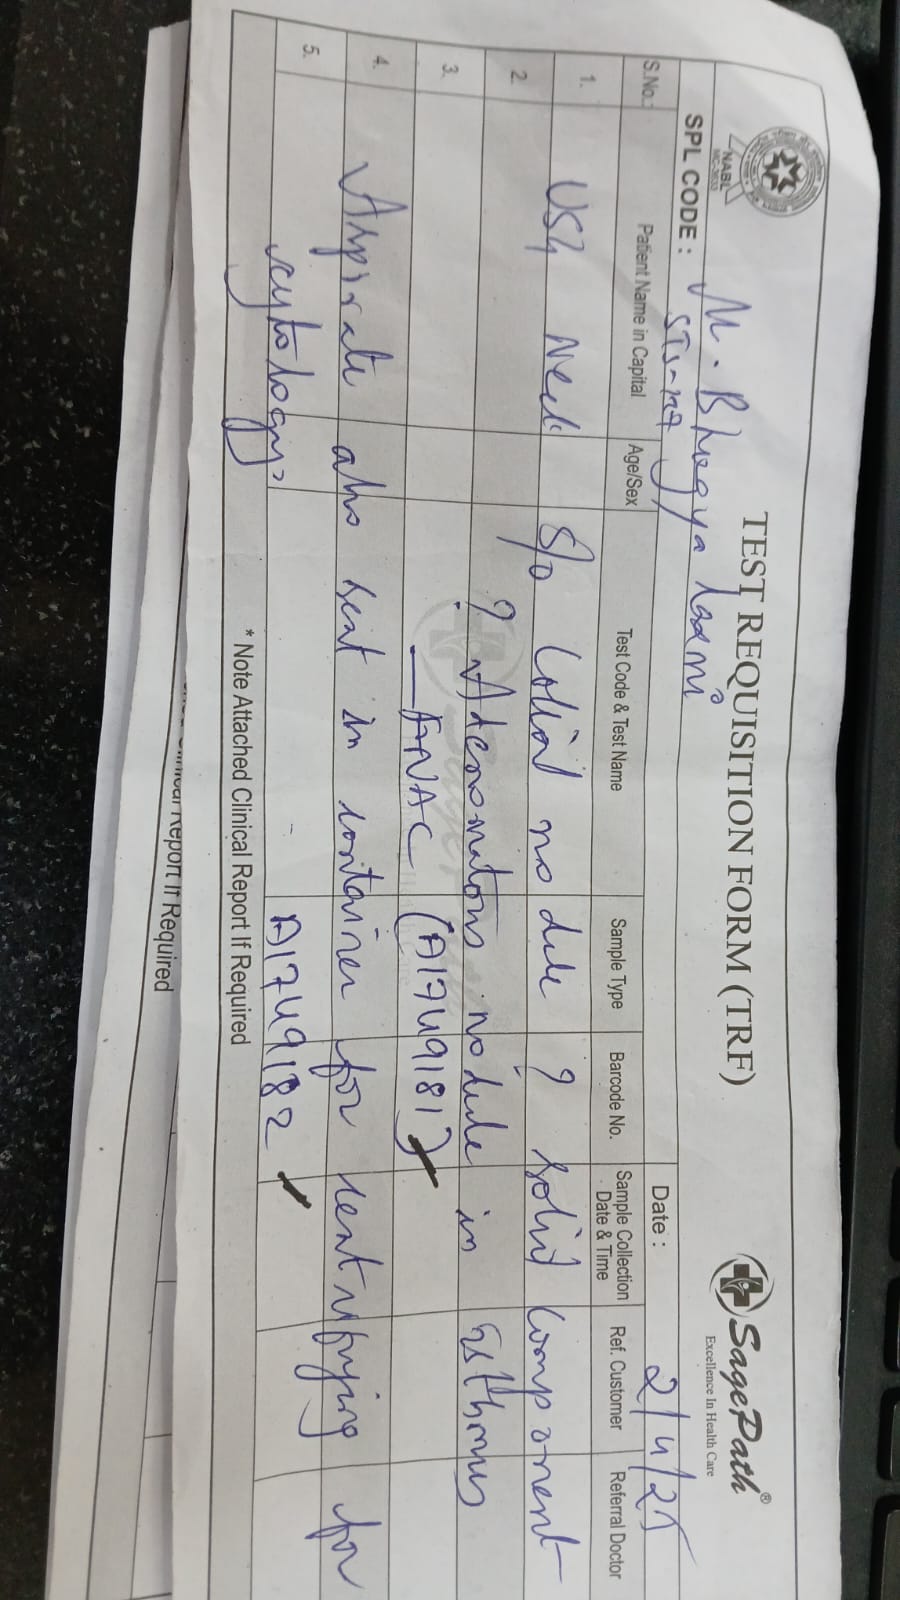 TEST REQUISITION FORM (TRF)
SagePath®
Excellence In Health Care
NABL
M. Bhagya laxmi
SPL CODE :
Date : 2/4/25
S.No.: Patient Name in Capital Age/Sex Test Code & Test Name Sample Type Barcode No. Sample Collection Date & Time Ref. Customer Referral Doctor
1. USG Neck S/o Colloid nodule ? solid component
2. ? Adenomatous nodule in isthmus
3. FNAC (A1749181)
4. Aspirate also sent in container for centrifuging for
5. cytology. A1749182
* Note Attached Clinical Report If Required
Report If Required